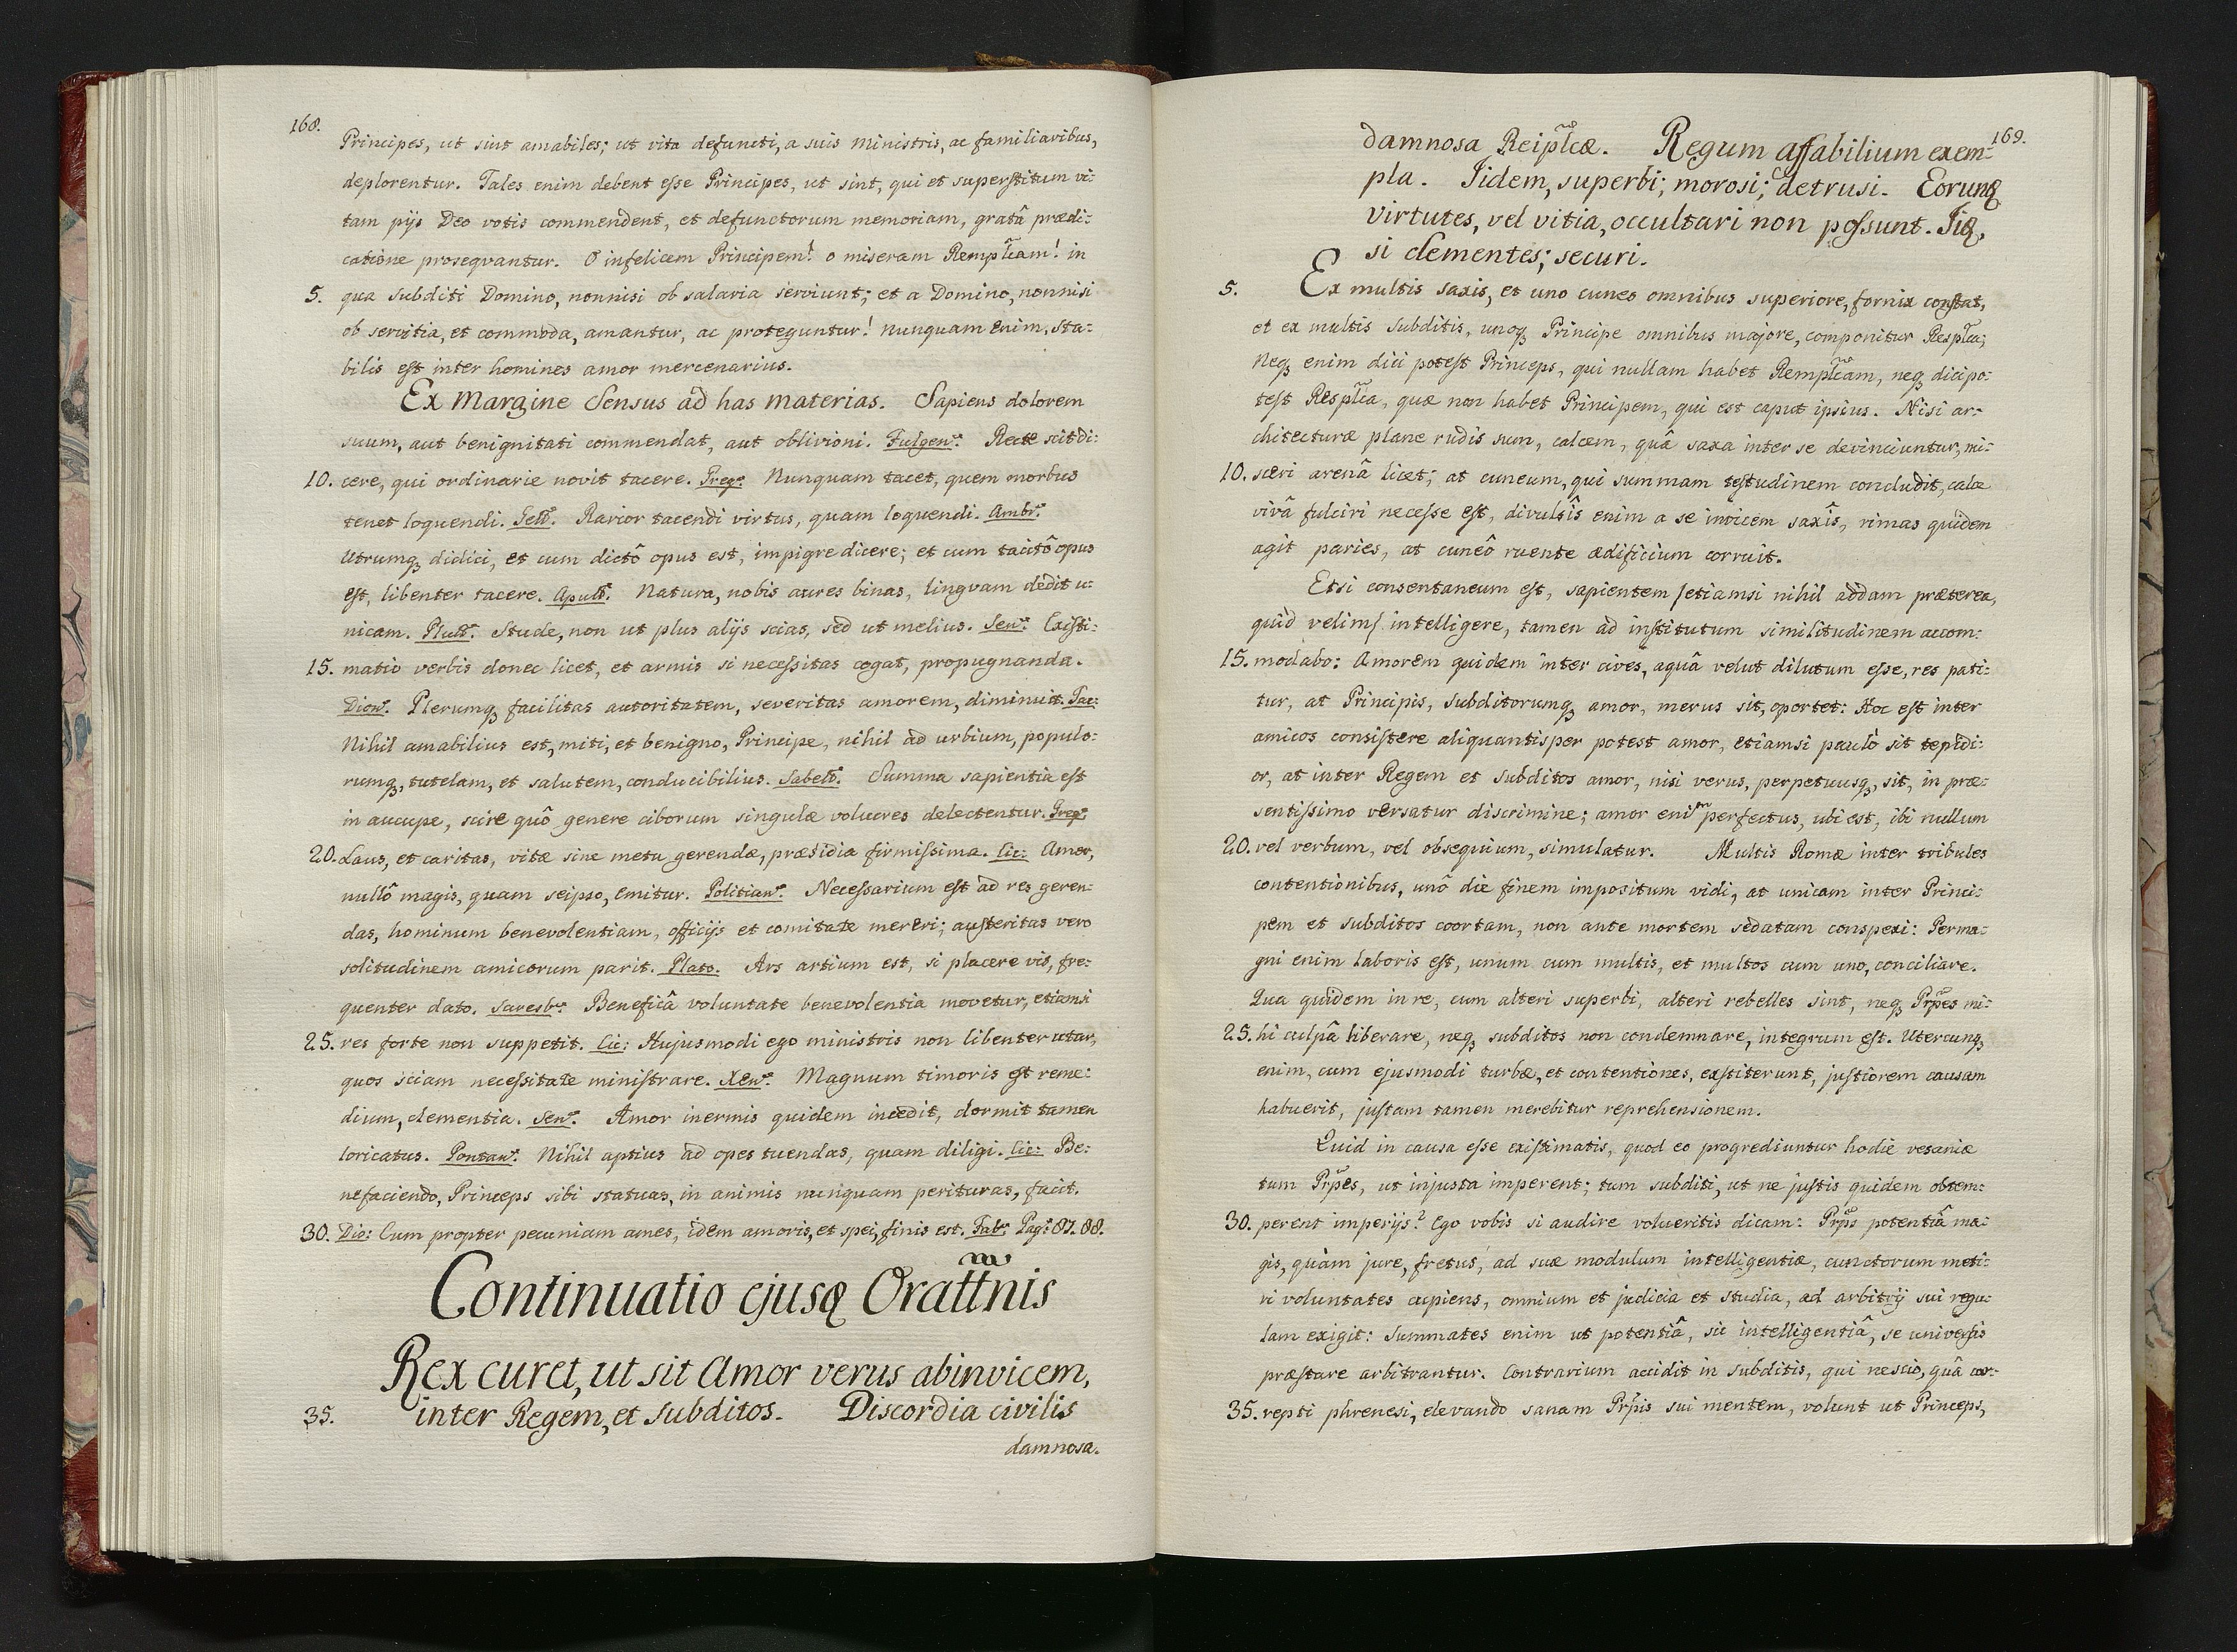 168.
Principes, ut sint amabiles; ut vita defuncti, a suis Ministris, ac familiaribus,
deplorentur. Tales enim debent esse Principes, ut sint, qui et superstitum vi:
tam pijs Deo votis commendent, et defunctorum memoriam, gratâ prædi:
catione prosequantur. O infelicem Principem! o miseram Remplcam! in
5. qua subditi Domino, nonnisi ob salaria serviunt; et a Domino, nonnisi
ob servitia, et commoda, amantur, ac proteguntur! nunquam enim, sta:
bilis est inter homines amor mercenarius.
Ex Margine Sensus ad has materias. Sapiens dolorem
suum, aut benignitati commendat, aut oblivioni. Fulgen: Recte scit di:
10. cere, qui ordinarie novit tacere. Greg: Nunquam tacet, quem morbus
tenet loquendi. Gell: Rarior tacendi virtus, quam loquendi. Ambr:
Utrumq didici, et cum dictô opus est, impigre dicere; et cum tacitô opus
est, libenter tacere. Apull: Natura, nobis aures binas, lingvam dedit u:
nicam. Plut: Stude, non ut plus alijs scias, sed ut melius. Sen: Existi:
15. matio verbis donec licet, et armis si necessitas cogat, propugnanda.
Dion: Plerumq facilitas autoritatem, severitas amorem, diminuit. Tac:
Nihil amabilius est, miti, et benigno, Principe, nihil ad urbium, populo:
rumq, tutelam, et salutem, conducibilius. Sabell: Summa sapientia est
in aucupe, scire quô genere ciborum singulæ volucres delectentur. Greg:
20. Laus, et caritas, vitæ sine metu gerendæ, præsidia firmissima. Cic: Amor,
nullô magis, quam seipso, emitur. Politian: Necessarium est ad res geren:
das, hominum benevolentiam, officijs et comitate mereri; austeritas vero
solitudinem amicorum parit. Plato. Ars artium est, si placere vis, fre:
quenter dato. Saresb: Beneficâ voluntate benevolentia movetur, etiamsi
25. res forte non suppetit. Cic: Hujusmodi ego ministris non libenter utar,
quos sciam necessitate ministrare. Xen: Magnum timoris est reme:
dium, clementia. Sen: Amor inermis quidem incedit, dormit tamen
loricatus. Pontan: Nihil aptius ad opes tuendas, quam diligi. Cic: Be:
nefaciendo, Princeps sibi statuas, in animis nunquam perituras, facit.
30. Dio: Cum propter pecuniam ames, idem amoris, et spei, finis est. Fab: Pag: 87. 88.
Continuatio ejusq Orattnis
Rex curet, ut sit Amor verus abinvicem,
35. inter Regem, et Subditos. Discordia civilis
damnosa.
169.
damnosa Reiplcæ. Regum affabilium exem:
pla. Iidem, superbi; morosi; detrusi. Eorunq
virtutes, vel vitia, occultari non possunt. Iiq,
si clementes; securi.
5. Ex multis saxis, et uno cuneo omnibus superiore, fornix constat,
et ex multis subditis, unoq Principe omnibus majore, componitur Resplca;
Neq enim dici potest Princeps, qui nullam habet Remplcam, neq dici po:
test Resplca, quæ non habet Principem, qui est caput ipsius. Nisi ar:
chitecturæ plane rudis sum, calcem, quâ saxa inter se devinciuntur, mi:
10. sceri arenâ licet; at cuneum, qui summam testudinem concludit, calce
vivâ fulciri necesse est, divulsîs enim a se invicem saxîs, rimas quidem
agit paries, at cuneô ruente ædificium corruit.
Etsi consentaneum est, sapientem /etiamsi nihil addam præterea,
quid velim/ intelligere, tamen ad institutum similitudinem accom:
15. modabo: Amorem quidem inter cives, aquâ velut dilutum esse, res pati:
tur, at Principis, subditorumq amor, merus sit, oportet: Hoc est inter
amicos consistere aliquantisper potest amor, etiamsi paulò sit tepidi:
or, at inter Regem et subditos amor, nisi verus, perpetuusq, sit, in præ:
sentissimo versatur discrimine; amor enim perfectus, ubi est, ibi nullum
20. vel verbum, vel obsequium, simulatur. Multis Romæ inter tribules
contentionibus, unô die finem impositum vidi, at unicam inter Princi:
pem et subditos coortam, non ante mortem sedatam conspexi: Perma:
gni enim laboris est, unum cum multis, et multos cum uno, conciliare.
Qua quidem in re, cum alteri superbi, alteri rebelles sint, neq Prpes mi:
25. hi culpâ liberare, neq subditos non condemnare, integrum est. Utercunq
enim, cum ejusmodi turbæ, et contentiones, exstiterunt, justiorem causam
habuerit, justam tamen merebitur reprehensionem.
Quid in causa esse existimatis, quod eo progrediuntur hodie vesaniæ
tum Prpes, ut injusta imperent; tum subditi, ut ne justis quidem obtem:
30. perent imperijs? Ego vobis si audire volueritis dicam: Prpis potentiâ ma:
gis, quàm jure, fretus, ad suæ modulum intelligentiæ, cunctorum meti:
ri voluntates cupiens, omnium et judicia et studia, ad arbitrij sui regu:
lam exigit: Summates enim ut potentiâ, sic intelligentiâ, se universis
præstare arbitrantur. Contrarium accidit in subditis, qui nescio, quâ cor:
35. repti phrenesi, elevando sanam Prpis sui mentem, volunt ut Princeps,